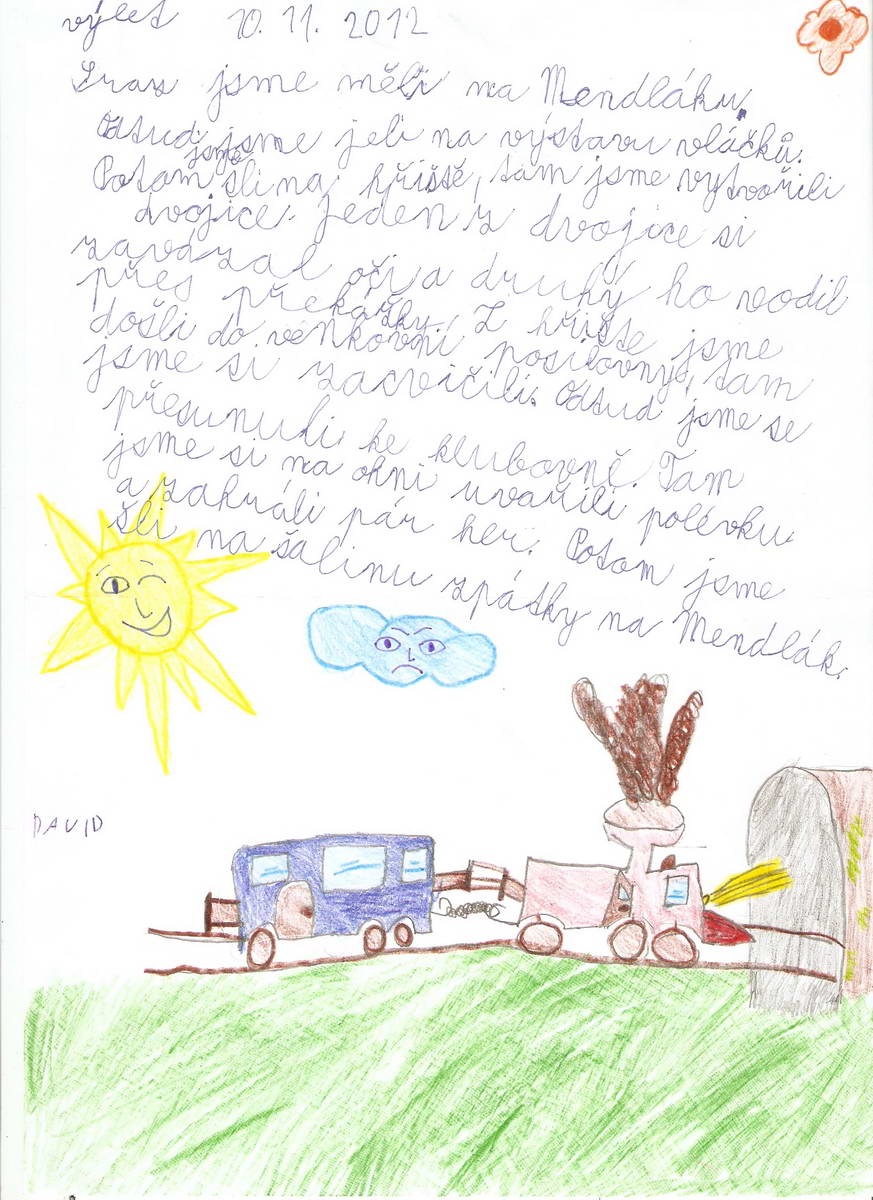 výlet 10. 11. 2012
Sraz jsme měli na Mendláku.
Odtud jsme jeli na výstavu vláčků.
Potom jsme šli na hřiště, tam jsme vytvořili
dvojice. Jeden z dvojice si
zavázal oči a druhý ho vodil
přes překážky. Z hřiště jsme
došli do venkovní posilovny, tam
jsme si zacvičili. Odtud jsme se
přesunuli ke klubovně. Tam
jsme si na ohni uvařili polévku
a zahráli pár her. Potom jsme
šli na šalinu zpátky na Mendlák.
DAVID